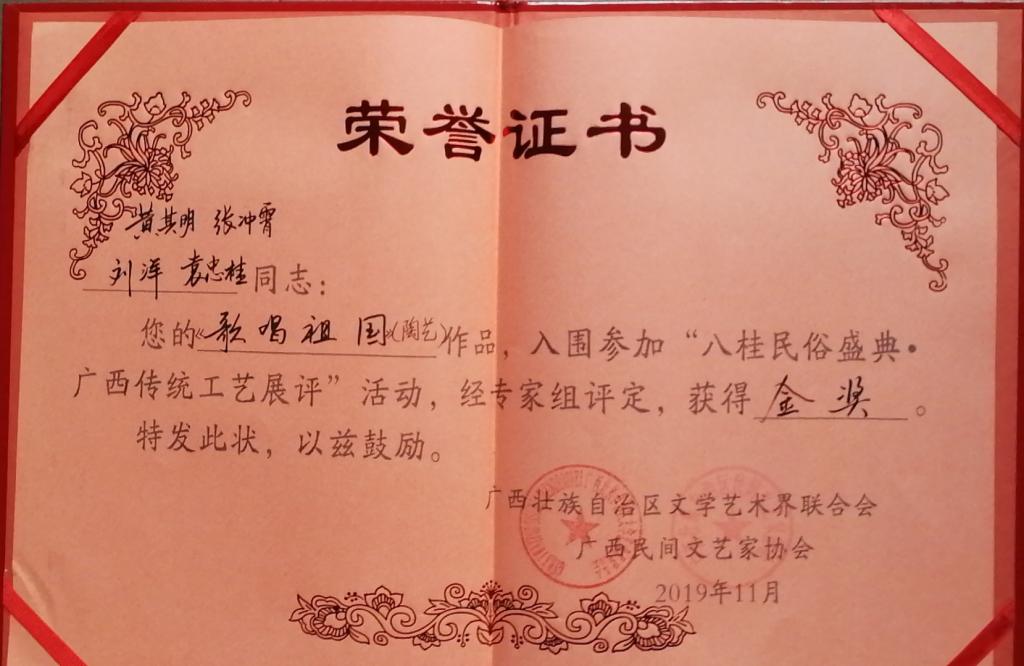 荣誉证书
黄其明 张冲霄
刘洋 袁忠桂同志：
您的《歌唱祖国》(陶艺)作品，入围参加“八桂民俗盛典·
广西传统工艺展评”活动，经专家组评定，获得 金奖 。
特发此状，以兹鼓励。
广西壮族自治区文学艺术界联合会
广西民间文艺家协会
2019年11月